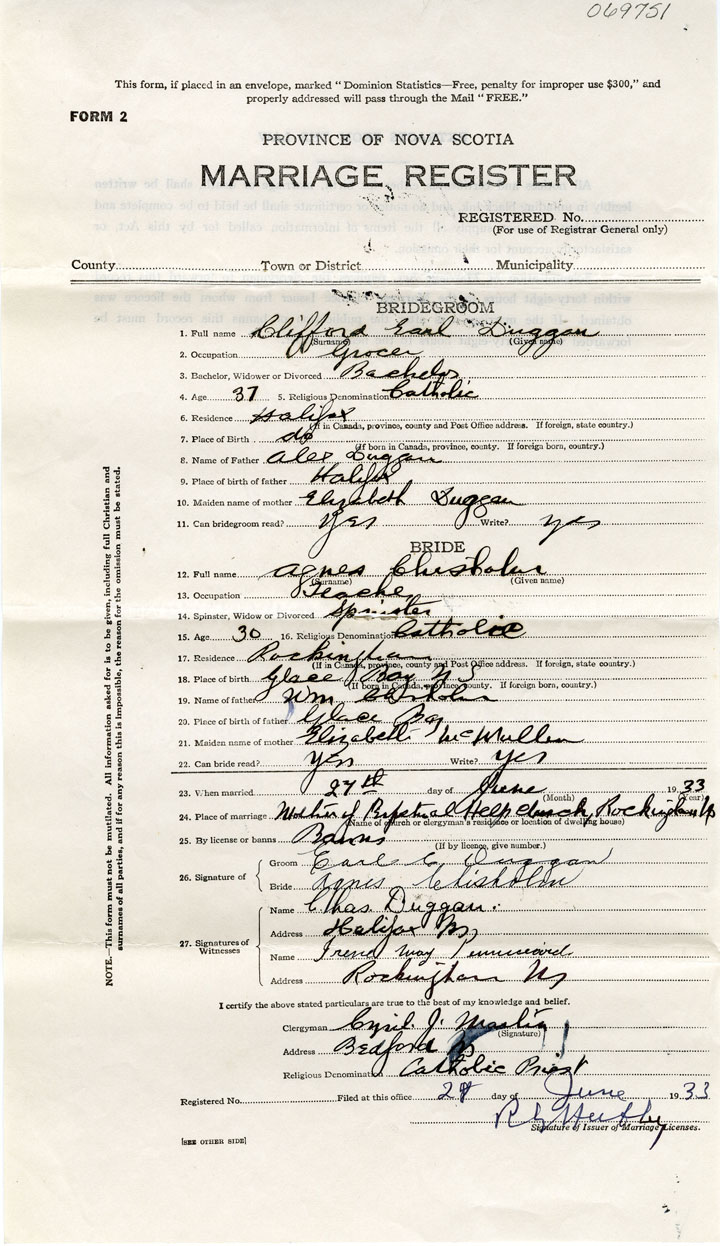 069751
This form, if placed in an envelope, marked "Dominion Statistics—Free, penalty for improper use $300," and
properly addressed will pass through the Mail "FREE."
FORM 2
PROVINCE OF NOVA SCOTIA
MARRIAGE REGISTER
REGISTERED No.
(For use of Registrar General only)
County Town or District Municipality
BRIDEGROOM
1. Full name Clifford Earl Duggan
(Surname) (Given name)
2. Occupation Grocer
3. Bachelor, Widower or Divorced Bachelor
4. Age 37 5. Religious Denomination Catholic
6. Residence Halifax
(If in Canada, province, county and Post Office address. If foreign, state country.)
7. Place of Birth do
(If born in Canada, province, county. If foreign born, country.)
8. Name of Father Alex Duggan
9. Place of birth of father Halifax
10. Maiden name of mother Elizabeth Duggan
11. Can bridegroom read? Yes Write? yes
BRIDE
12. Full name Agnes Chisholm
(Surname) (Given name)
13. Occupation Teacher
14. Spinster, Widow or Divorced Spinster
15. Age 30 16. Religious Denomination Catholic
17. Residence Rockingham
(If in Canada, province, county and Post Office address. If foreign, state country.)
18. Place of birth Glace Bay NS
(If born in Canada, province, county. If foreign born, country.)
19. Name of father Wm Chisholm
20. Place of birth of father Glace Bay
21. Maiden name of mother Elizabeth McMullen
22. Can bride read? Yes Write? Yes
23. When married 27th day of June 1933
(Month) (Year)
24. Place of marriage Mother of Perpetual Help church, Rockingham NS
(Name of church or clergyman's residence or location of dwelling house)
25. By license or banns Banns
(If by licence, give number.)
26. Signature of
Groom Earle C Duggan
Bride Agnes Chisholm
27. Signatures of Witnesses
Name Chas. Duggan.
Address Halifax NS
Name Irene May
Address Rockingham NS
I certify the above stated particulars are true to the best of my knowledge and belief.
Clergyman Cyril J. Martin
(Signature)
Address Bedford
Religious Denomination Catholic Priest
Registered No. Filed at this office 28 day of June 1933
Signature of Issuer of Marriage Licenses.
[SEE OTHER SIDE]
NOTE.—This form must not be mutilated. All information asked for is to be given, including full Christian and
surnames of all parties, and if for any reason this is impossible, the reason for the omission must be stated.